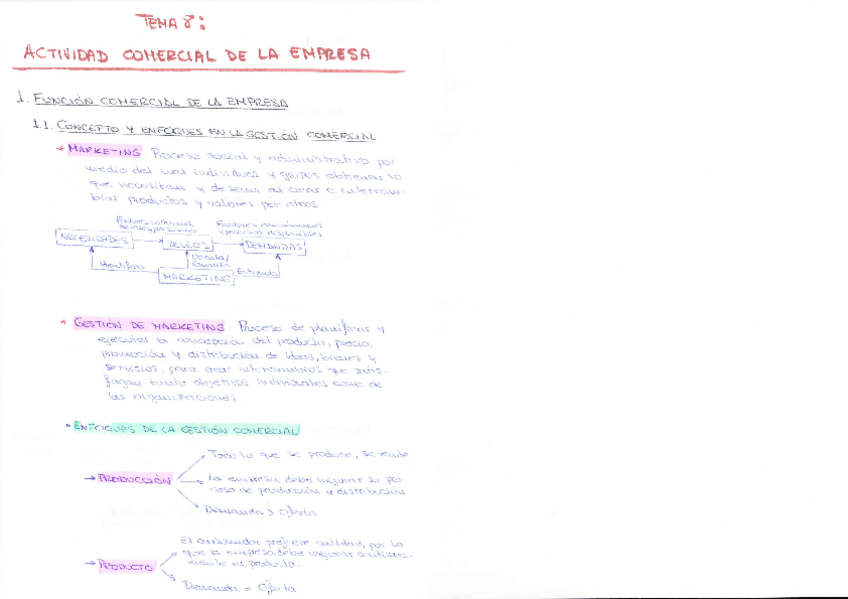 TEMA 8:
ACTIVIDAD COMERCIAL DE LA EMPRESA
1. FUNCIÓN COMERCIAL DE LA EMPRESA
1.1. CONCEPTO Y ENFOQUES EN LA GESTIÓN COMERCIAL
* MARKETING Proceso social y administrativo por
medio del cual individuos y grupos obtienen lo
que necesitan y desean al crear e intercam-
biar productos y valores por otros.
Factores culturales
Factores económicos
y recursos disponibles
NECESIDADES → DESEOS → DEMANDAS
Identifica
Orienta/
Estimula
MARKETING
* GESTIÓN DE MARKETING. Proceso de planificar y
ejecutar la concepción del producto, precio,
promoción y distribución de ideas, bienes y
servicios, para crear intercambios que satis-
fagan tanto objetivos individuales como de
las organizaciones
* ENFOQUES DE LA GESTIÓN COMERCIAL
→ PRODUCCIÓN
Todo lo que se produce, se vende
La empresa debe mejorar su pro-
ceso de producción y distribución
Demanda > Oferta
→ PRODUCTO
El consumidor prefiere calidad, por lo
que la empresa debe mejorar continua-
mente el producto.
Demanda = Oferta